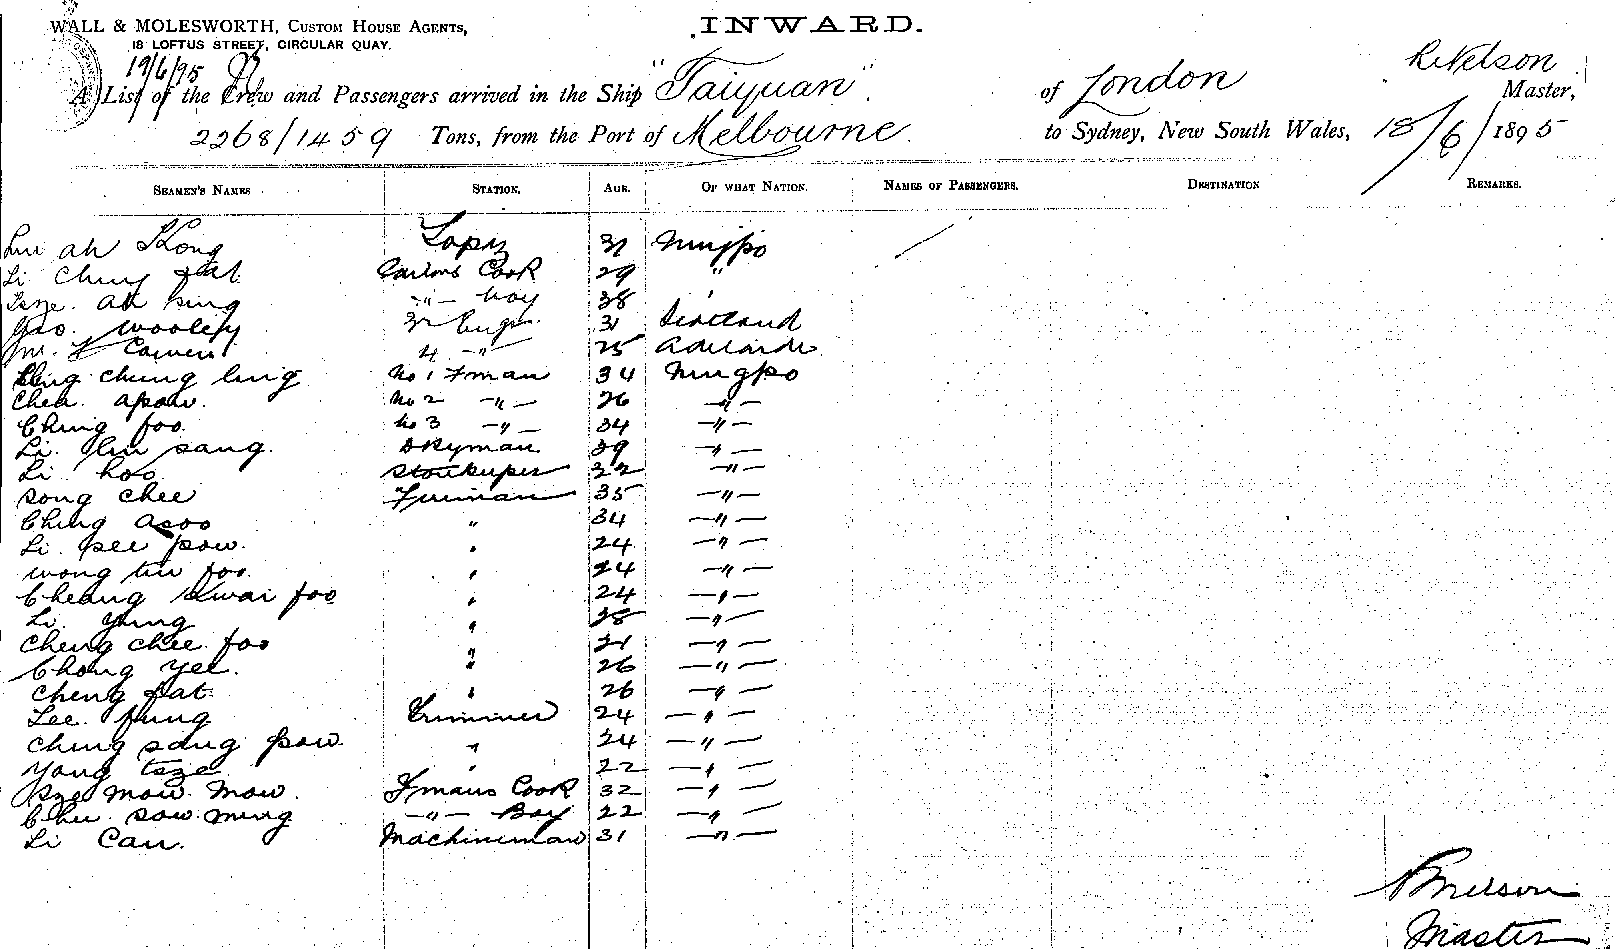 WALL & MOLESWORTH, CUSTOM HOUSE AGENTS,
18 LOFTUS STREET, CIRCULAR QUAY.
INWARD.
19/6/95
A List of the Crew and Passengers arrived in the Ship "Taiyuan" of London R Nelson Master,
2268/1459 Tons, from the Port of Melbourne to Sydney, New South Wales, 18/6/1895
SEAMEN'S NAMES STATION. AGE. OF WHAT NATION. NAMES OF PASSENGERS. DESTINATION REMARKS.
ah Kong 31 Ningpo
Li Ching fat Sailors Cook 29 "
ah king -"- boy 38 "
Geo. Wooley 3rd Engr. 31 Scotland
4 -"- 25 Adelaide
Ching chung ling No 1 Fman 34 Ningpo
Chea apow. No 2 -"- 26 -"-
Ching foo No 3 -"- 34 -"-
Li lin sang. Dkyman 39 -"-
Li hoo Storekeeper 32 -"-
Song chee Fireman 35 -"-
Ching asoo " 34 -"-
Li see pow. " 24 -"-
wong tin foo. " 24 -"-
Cheang Kwai foo " 24 -"-
Li Yung " 28 -"-
Cheng chee foo " 21 -"-
Chong yee. " 26 -"-
Cheng fat " 26 -"-
Lee fung Trimmer 24 -"-
Ching sang pow. " 24 -"-
Yong tsze " 22 -"-
mow mow. Fmans Cook 32 -"-
Chu sow ming -"- Boy 22 -"-
Li Can. Machineman 31 -"-
R Nelson
Master